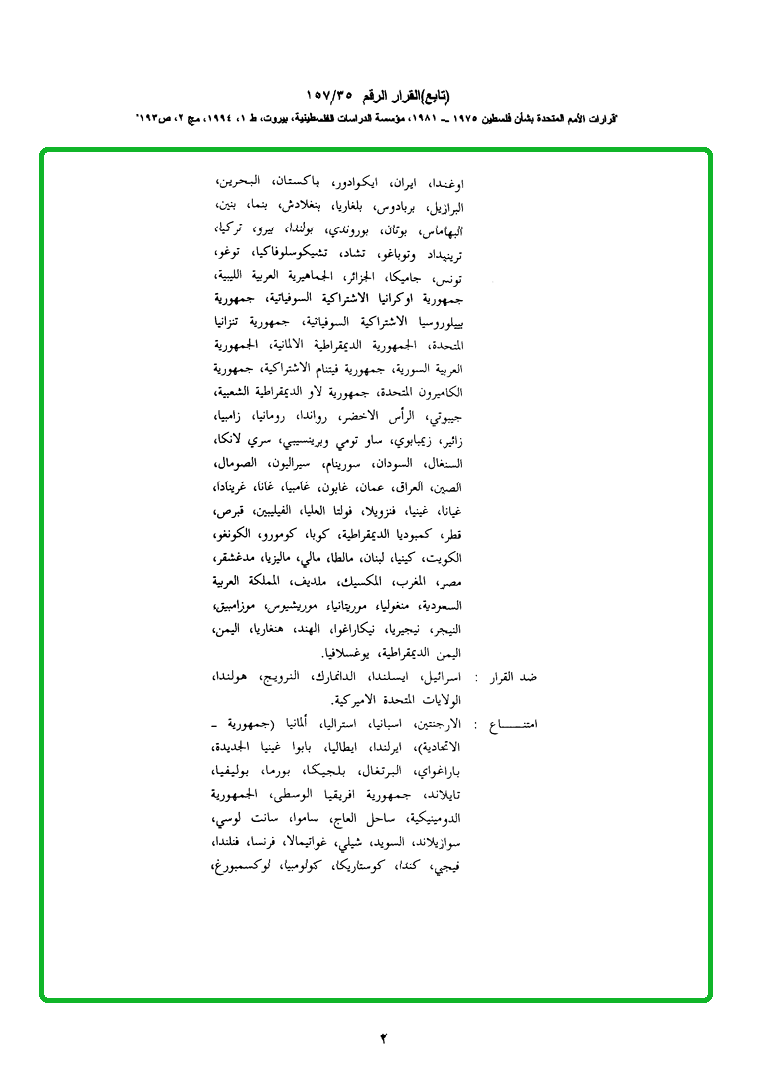 (تابع)القرار الرقم ١٥٧/٣٥
"قرارات الأمم المتحدة بشأن فلسطين ١٩٧٥ – ١٩٨١، مؤسسة الدراسات الفلسطينية، بيروت، ط ١، ١٩٩٤، مج ٢، ص١٩٣"
اوغندا، ايران، ايكوادور، باكستان، البحرين،
البرازيل، بربادوس، بلغاريا، بنغلادش، بنما، بنين،
البهاماس، بوتان، بوروندي، بولندا، بيرو، تركيا،
ترينيداد وتوباغو، تشاد، تشيكوسلوفاكيا، توغو،
تونس، جاميكا، الجزائر، الجماهيرية العربية الليبية،
جمهورية اوكرانيا الاشتراكية السوفياتية، جمهورية
بييلوروسيا الاشتراكية السوفياتية، جمهورية تنزانيا
المتحدة، الجمهورية الديمقراطية الالمانية، الجمهورية
العربية السورية، جمهورية فيتنام الاشتراكية، جمهورية
الكاميرون المتحدة، جمهورية لاو الديمقراطية الشعبية،
جيبوتي، الرأس الاخضر، رواندا، رومانيا، زامبيا،
زائير، زيمبابوي، ساو تومي وبرينسيبي، سري لانكا،
السنغال، السودان، سورينام، سيراليون، الصومال،
الصين، العراق، عمان، غابون، غامبيا، غانا، غرينادا،
غيانا، غينيا، فنزويلا، فولتا العليا، الفيليبين، قبرص،
قطر، كمبوديا الديمقراطية، كوبا، كومورو، الكونغو،
الكويت، كينيا، لبنان، مالطا، مالي، ماليزيا، مدغشقر،
مصر، المغرب، المكسيك، ملديف، المملكة العربية
السعودية، منغولياء موريتانياء موريشيوس، موزامبيق،
النيجر، نيجيريا، نيكاراغوا، الهند، هنغاريا، اليمن،
اليمن الديمقراطية، يوغسلافيا.
ضد القرار : اسرائيل، ايسلندا، الدانمارك، النرويج، هولندا،
الولايات المتحدة الاميركية.
امتنـــــاع : الارجنتين، اسبانيا، استراليا، ألمانيا (جمهورية –
الاتحادية)، ايرلندا، ايطاليا، بابوا غينيا الجديدة،
باراغواي، البرتغال، بلجيكا، بورما، بوليفيا،
تايلاند، جمهورية افريقيا الوسطى، الجمهورية
الدومينيكية، ساحل العاج، ساموا، سانت لوسي،
سوازيلاند، السويد، شيلي، غواتيمالا، فرنسا، فنلندا،
فيجي، كندا، كوستاريكا، كولومبيا، لوكسمبورغ،
٢